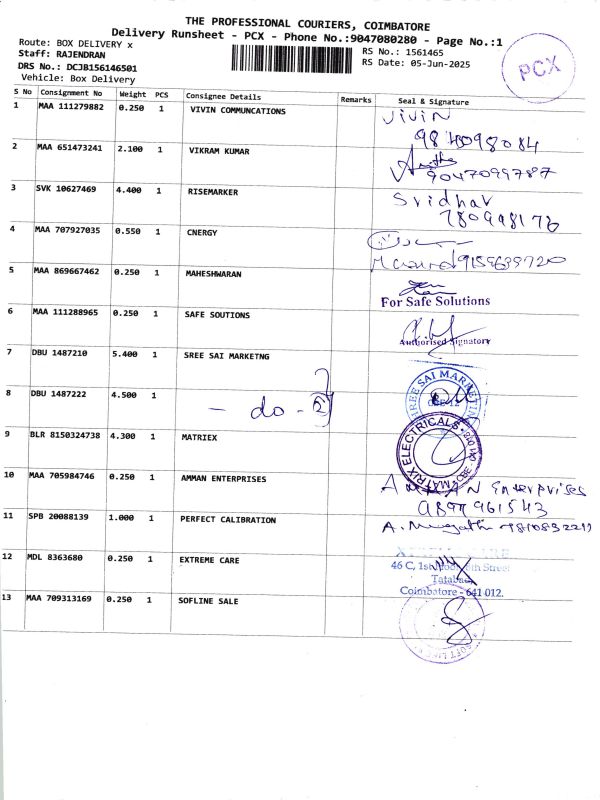 THE PROFESSIONAL COURIERS, COIMBATORE
Delivery Runsheet - PCX - Phone No.:9047080280 - Page No.:1
Route: BOX DELIVERY x
Staff: RAJENDRAN
DRS No.: DCJB156146501
Vehicle: Box Delivery
RS No.: 1561465
RS Date: 05-Jun-2025
PCX
S No Consignment No Weight PCS Consignee Details Remarks Seal & Signature
1 MAA 111279882 0.250 1 VIVIN COMMUNCATIONS Vivin
2 MAA 651473241 2.100 1 VIKRAM KUMAR
9047099787
3 SVK 10627469 4.400 1 RISEMARKER Sridhar
4 MAA 707927035 0.550 1 CNERGY
5 MAA 869667462 0.250 1 MAHESHWARAN
For Safe Solutions
6 MAA 111288965 0.250 1 SAFE SOUTIONS
Authorised Signatory
7 DBU 1487210 5.400 1 SREE SAI MARKETNG
SREE SAI MARKETING
8 DBU 1487222 4.500 1 - do - 2
9 BLR 8150324738 4.300 1 MATRIEX
MATRIX ELECTRICALS
10 MAA 705984746 0.250 1 AMMAN ENTERPRISES AMMAN Enterprises
11 SPB 20088139 1.000 1 PERFECT CALIBRATION
12 MDL 8363680 0.250 1 EXTREME CARE
46 C, 1st Floor, Street
Tatabad
Coimbatore - 641 012.
13 MAA 709313169 0.250 1 SOFLINE SALE